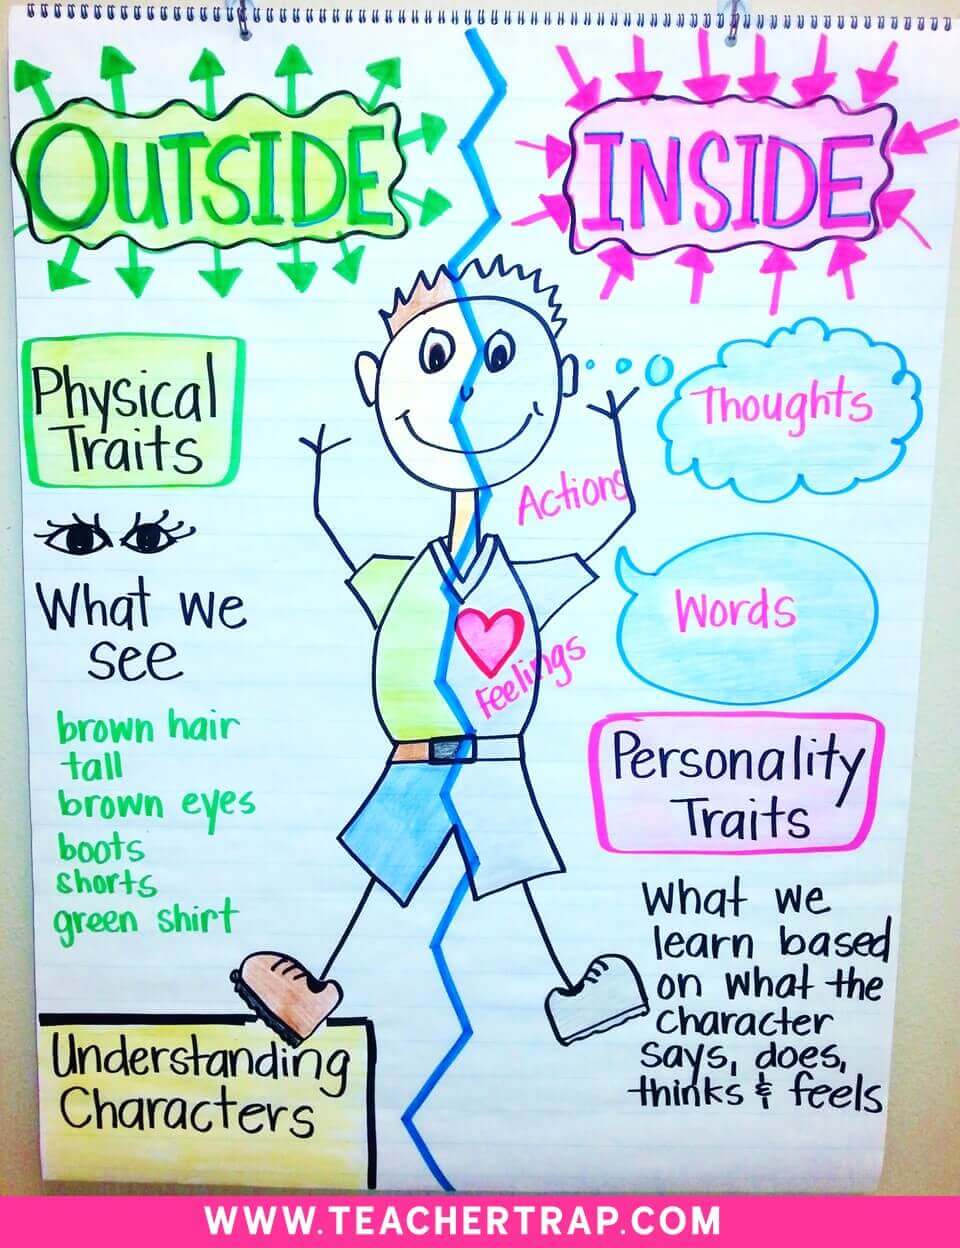 OUTSIDE
Physical
Traits
What we
see
brown hair
tall
brown eyes
boots
shorts
green shirt
Understanding
Characters
INSIDE
Thoughts
Actions
Words
Feelings
Personality
Traits
What we
learn based
on what the
character
says, does,
thinks & feels
WWW.TEACHERTRAP.COM